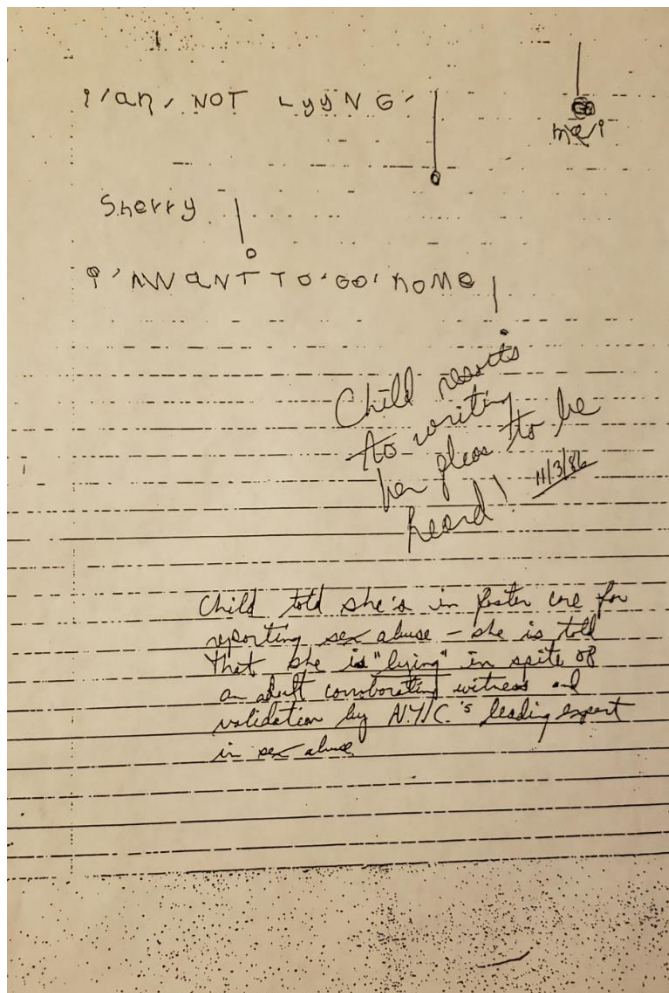 I'an, NOT LyyNG'
meri
Sherry
I'WANT TO'GO'hOME
Child resorts
to writing
her pleas to be
heard! 11/3/86
Child told she's in foster care for
reporting sex abuse - she is told
that she is "lying" in spite of
an adult corroborating witness and
validation by N.Y.C.'s leading expert
in sex abuse